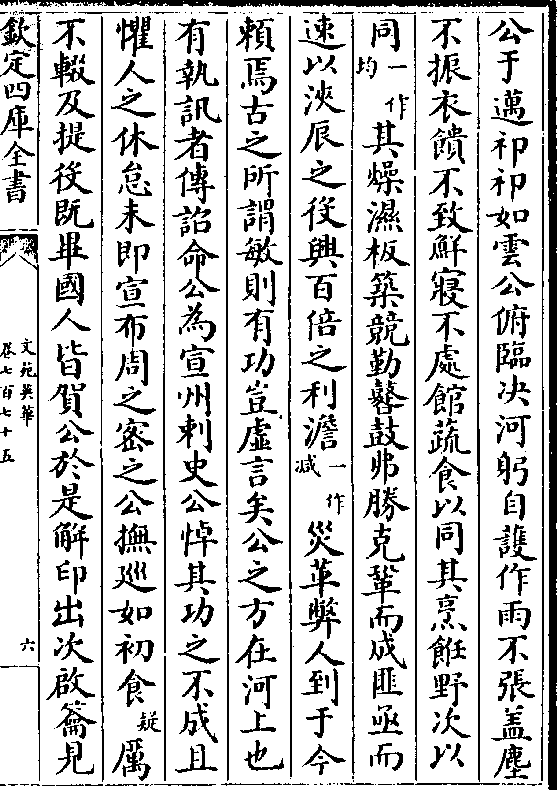 公于邁祁祁如雲公俯臨决河躬自護作雨不張盖塵
不振衣饋不致鮮寢不處館蔬食以同其烹飪野次以
同一作均其燥濕板築競勤鼛鼓弗勝克鞏而成匪亟而
速以浹辰之役興百倍之利澹一作減災革弊人到于今
賴焉古之所謂敏則有功豈虛言矣公之方在河上也
有執訊者傳詔命公為宣州刺史公悼其功之不成且
懼人之休怠未即宣布周之密之公撫巡如初食疑厲
不輟及提役既畢國人皆賀公於是解印出次啟籥見
欽定四庫全書
文苑英華
卷七百七十五
六